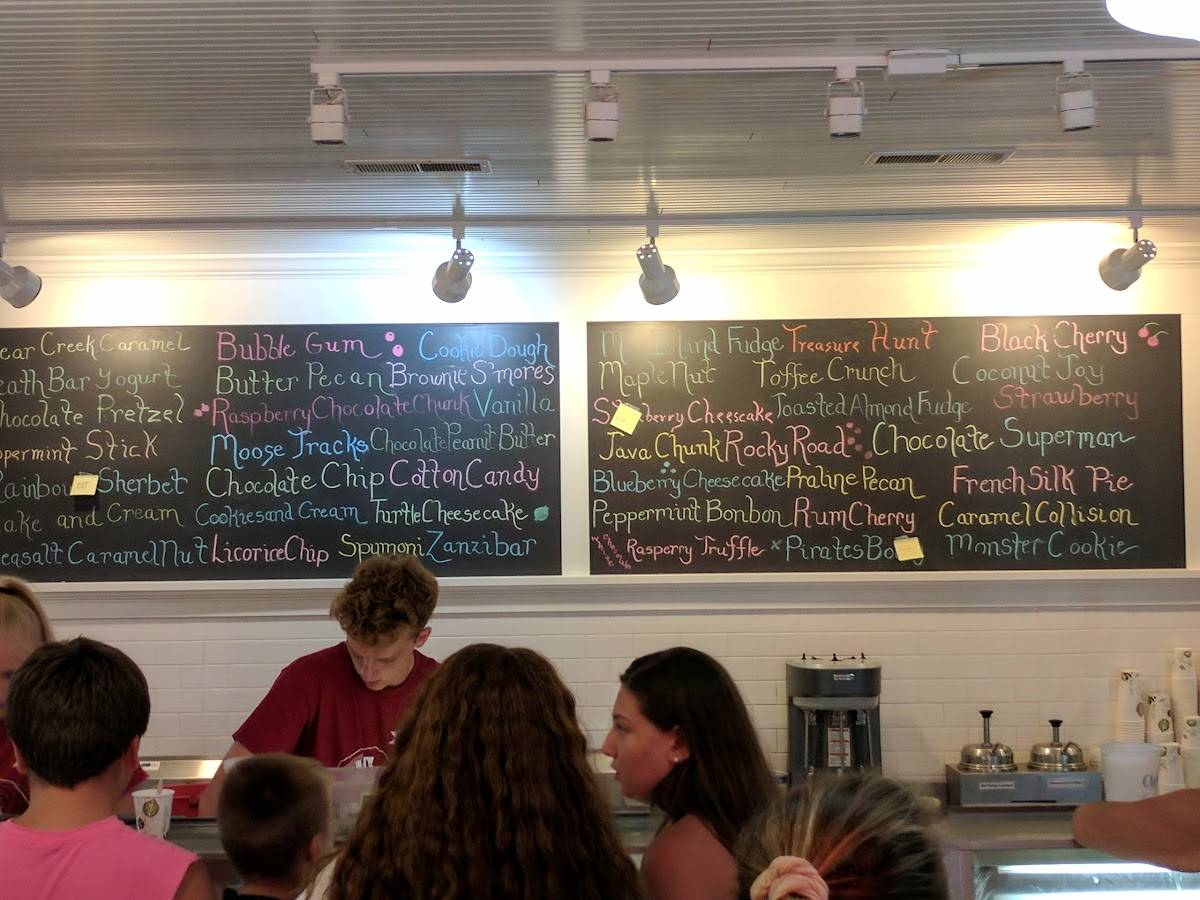 ear Creek Caramel Bubble Gum Cookie Dough
eath Bar Yogurt Butter Pecan Brownie S'mores
hocolate Pretzel Raspberry Chocolate Chunk Vanilla
ppermint Stick Moose Tracks Chocolate Peanut Butter
Rainbow Sherbet Chocolate Chip Cotton Candy
ake and Cream Cookies and Cream Turtle Cheesecake
easalt Caramel Nut Licorice Chip Spumoni Zanzibar
Fudge Treasure Hunt Black Cherry
Maple Nut Toffee Crunch Coconut Joy
berry Cheesecake Toasted Almond Fudge Strawberry
Java Chunk Rocky Road Chocolate Superman
Blueberry Cheesecake Praline Pecan French Silk Pie
Peppermint Bonbon Rum Cherry Caramel Collision
Rasperry Truffle Pirates Bo Monster Cookie